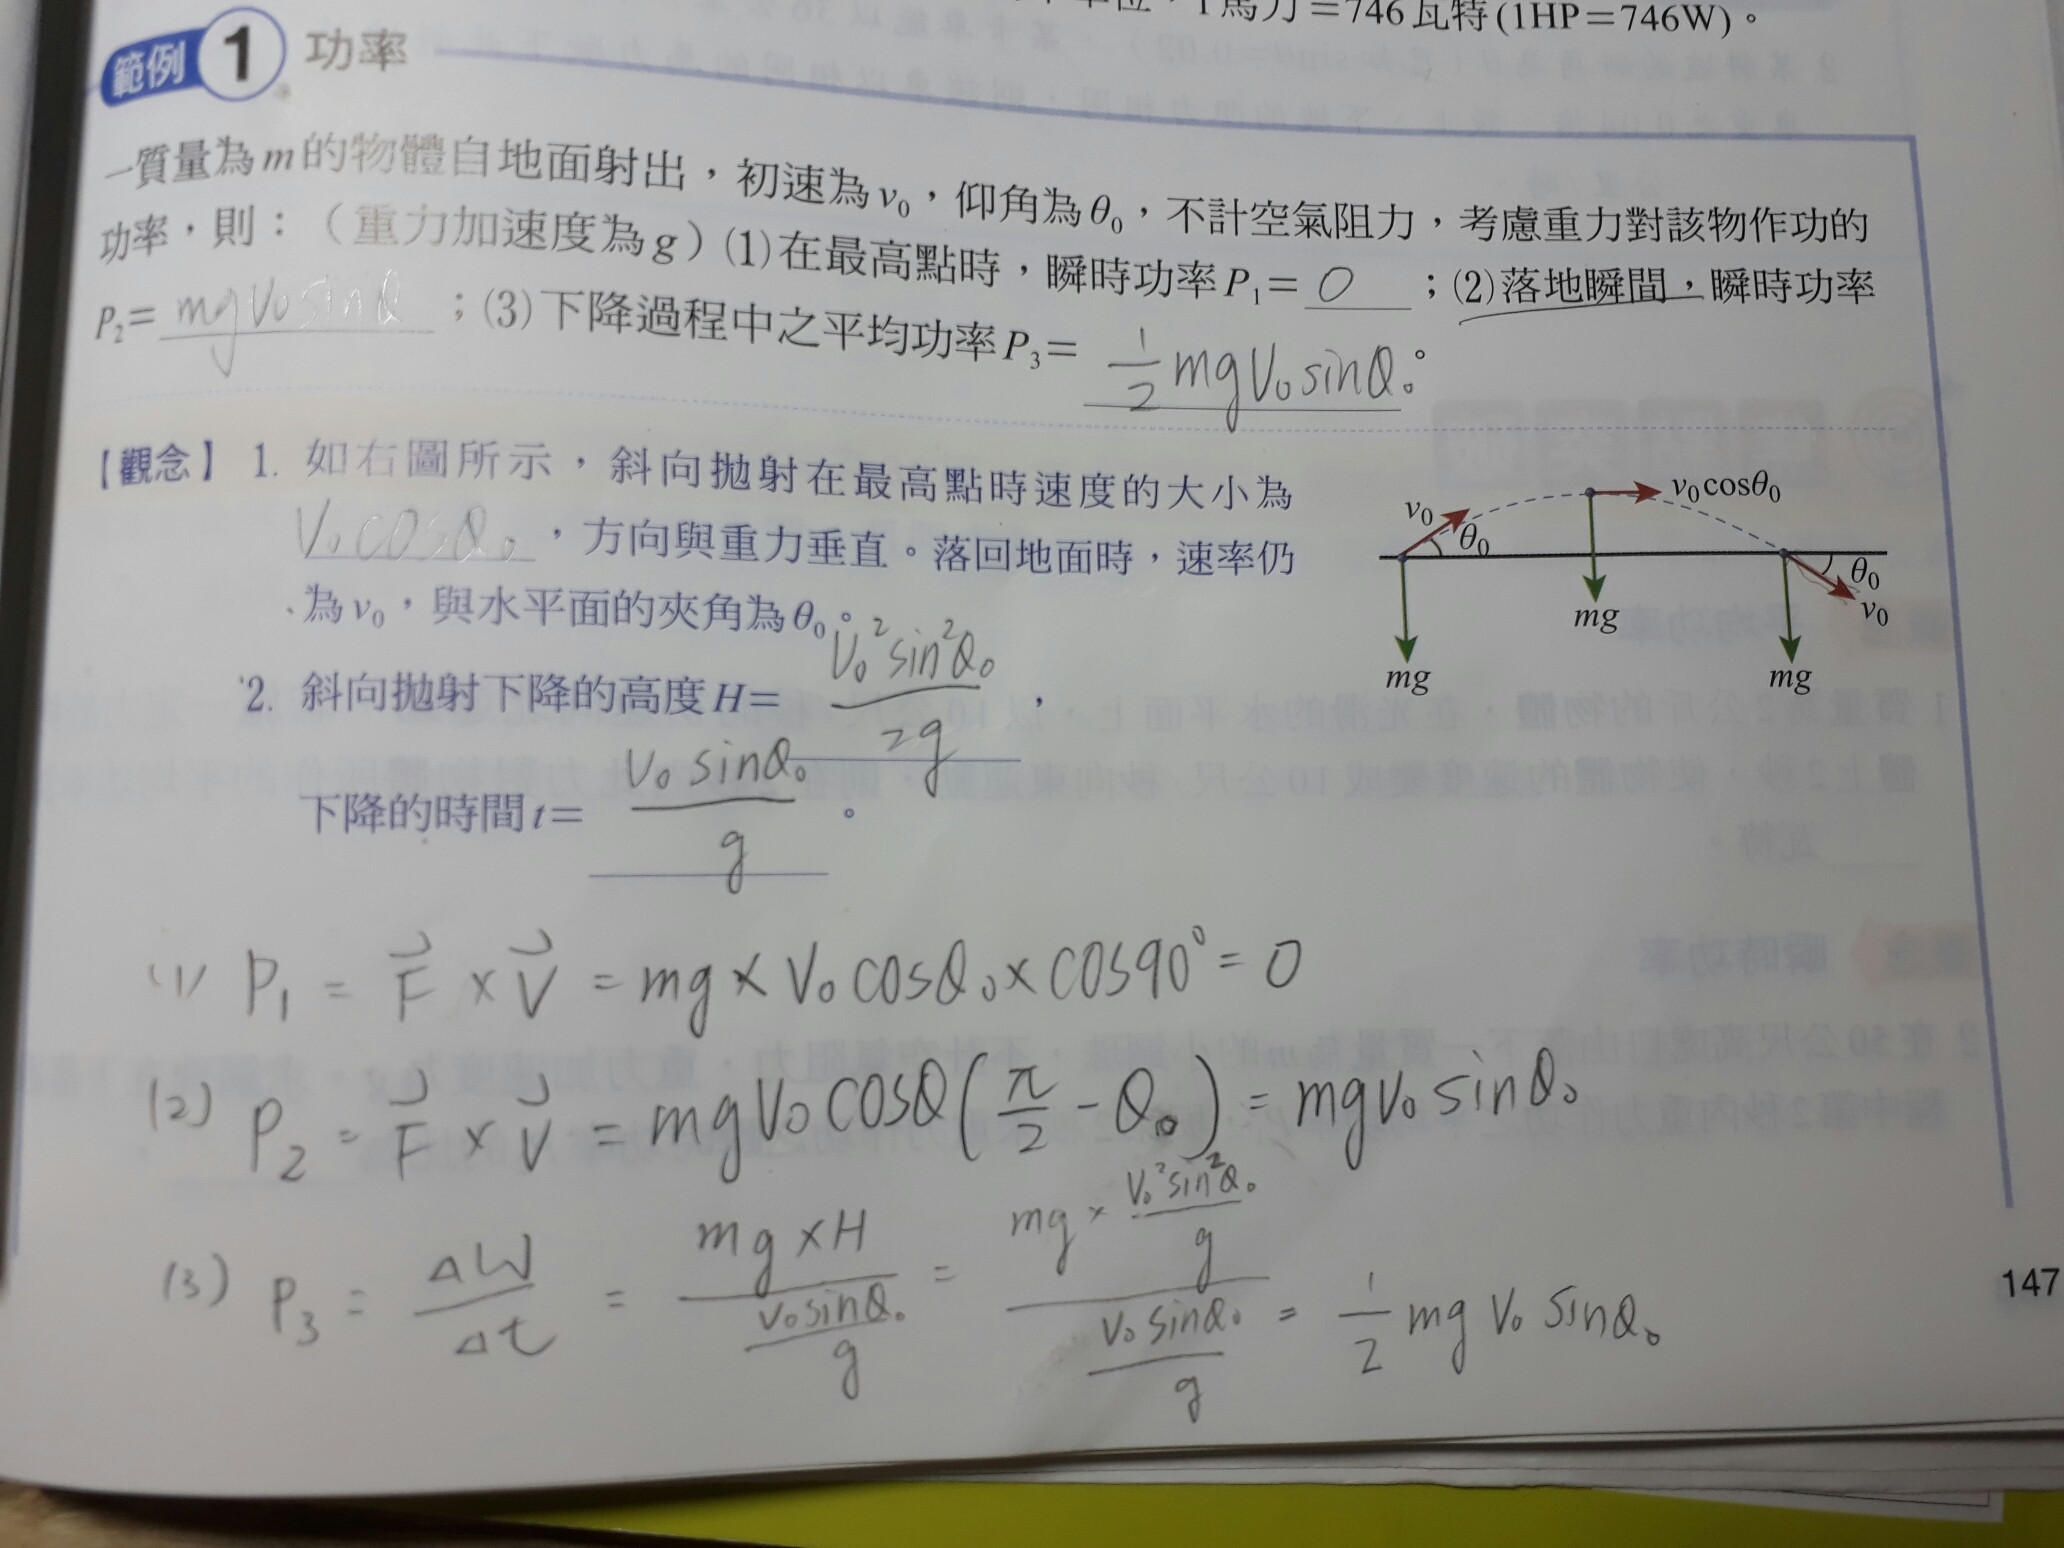 單位，1馬力=746瓦特(1HP=746W)。
範例 1 功率
一質量為m的物體自地面射出，初速為v₀，仰角為θ₀，不計空氣阻力，考慮重力對該物作功的
功率，則：（重力加速度為g）(1)在最高點時，瞬時功率P₁= 0 ；(2)落地瞬間，瞬時功率
P₂= mgV₀sinθ ；(3)下降過程中之平均功率P₃= 1/2 mgV₀sinθ₀。
【觀念】 1. 如右圖所示，斜向拋射在最高點時速度的大小為
V₀cosθ₀，方向與重力垂直。落回地面時，速率仍
為v₀，與水平面的夾角為θ₀。
2. 斜向拋射下降的高度H= V₀²sin²θ₀/2g ，
下降的時間t= V₀sinθ₀/g 。
v₀
θ₀
mg
v₀cosθ₀
mg
θ₀
v₀
mg
(1) P₁ = F⃗ × V⃗ = mg × V₀cosθ₀ × cos90° = 0
(2) P₂ = F⃗ × V⃗ = mgV₀cosθ(π/2 - θ₀) = mgV₀sinθ₀
(3) P₃ = ΔW/Δt = (mg×H)/(V₀sinθ₀/g) = (mg × V₀²sin²θ₀/g)/(V₀sinθ₀/g) = 1/2 mgV₀sinθ₀
147